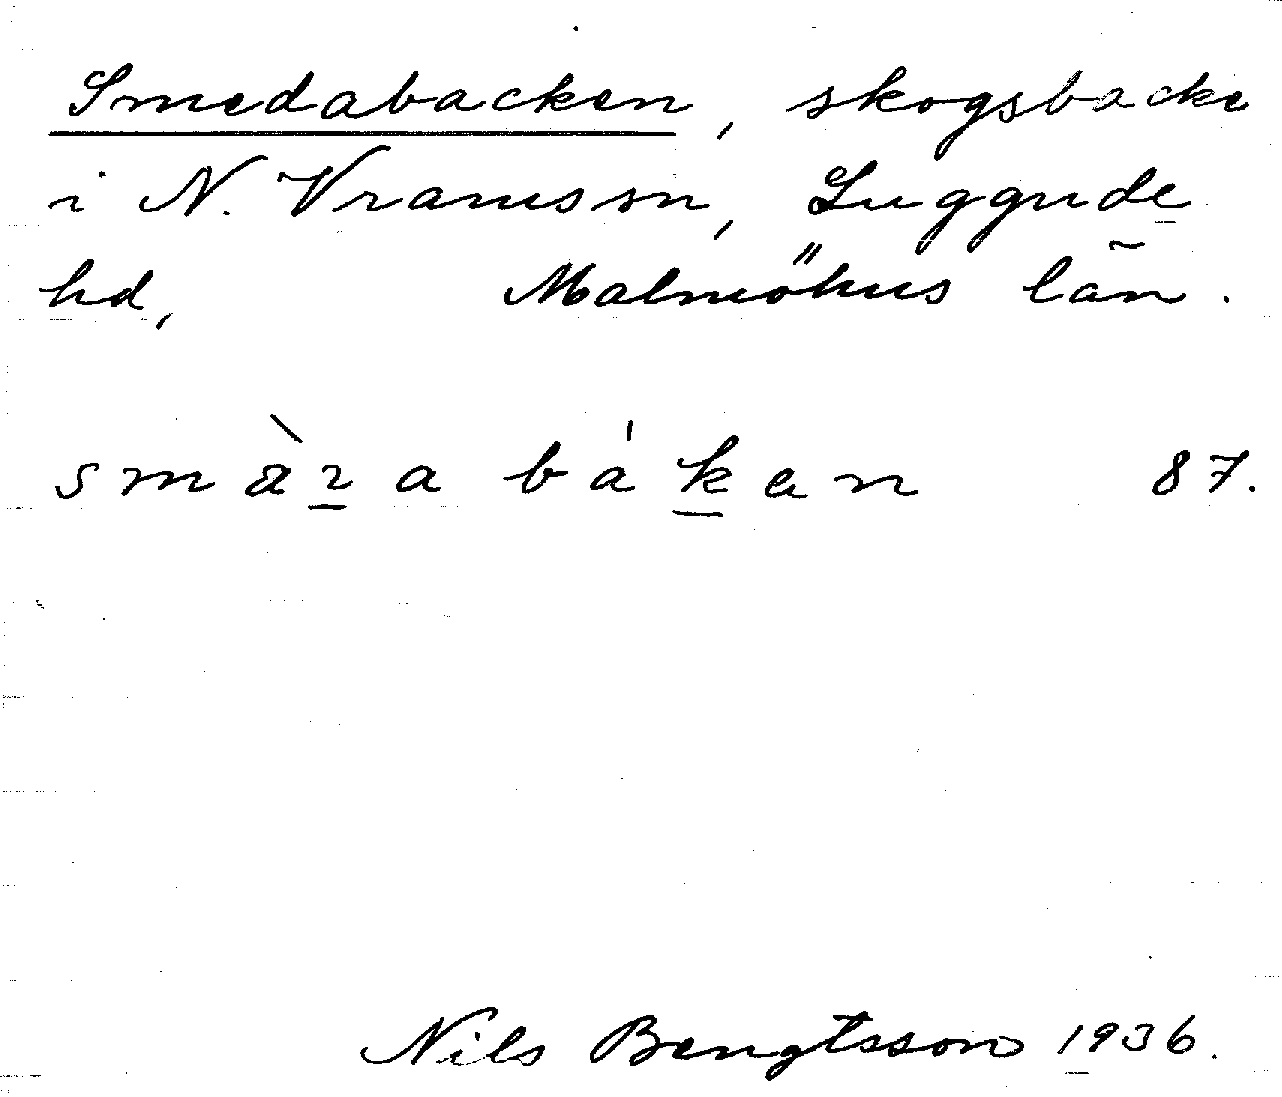 Smedabacken, skogsbacke
i N. Vrams sn, Luggude
hd, Malmöhus län.
smæ̀ra bákan 87.
Nils Bengtsson 1936.